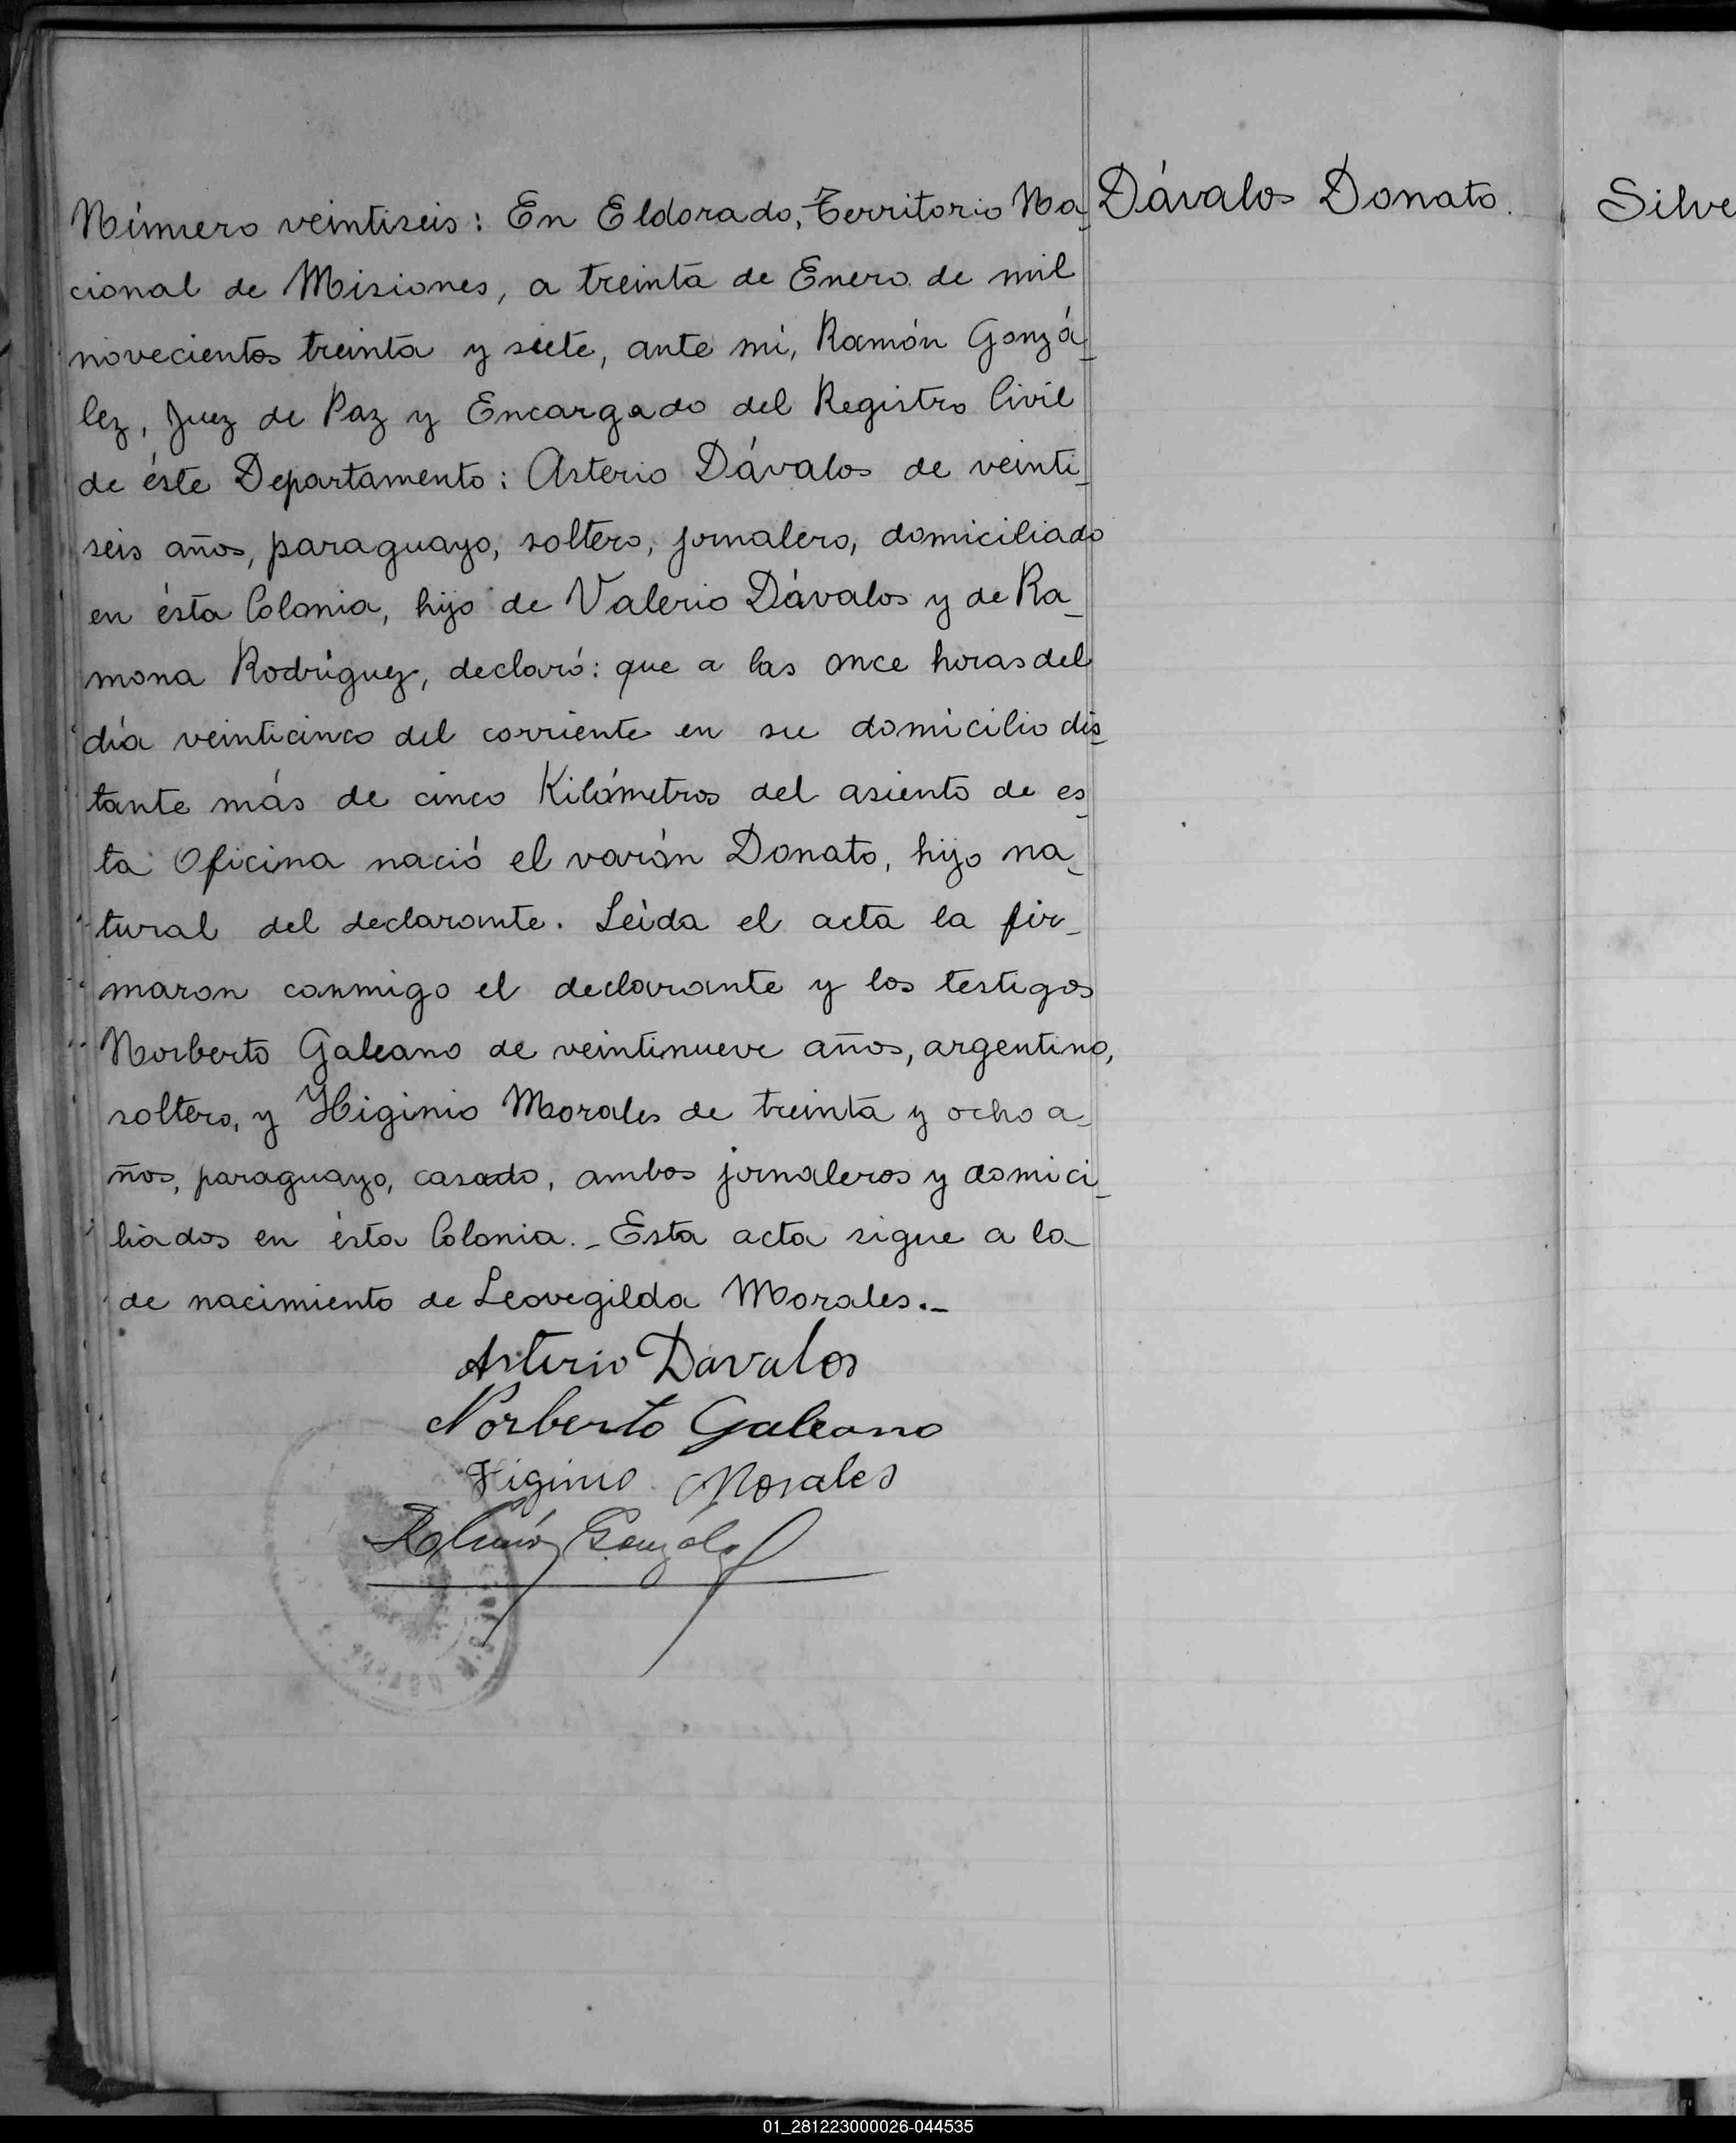 Número veintiseis: En Eldorado, Territorio Na_ Dávalos Donato.
cional de Misiones, a treinta de Enero de mil
novecientos treinta y siete, ante mí, Ramón Gonzá_
lez, Juez de Paz y Encargado del Registro Civil
de éste Departamento: Asterio Dávalos de veinti_
seis años, paraguayo, soltero, jornalero, domiciliado
en ésta Colonia, hijo de Valerio Dávalos y de Ra_
mona Rodríguez, declaró: que a las once horas del
día veinticinco del corriente en su domicilio dis_
tante más de cinco Kilómetros del asiento de es_
ta Oficina nació el varón Donato, hijo na_
tural del declarante. Leída el acta la fir_
maron conmigo el declarante y los testigos
Norberto Galeano de veintinueve años, argentino,
soltero, y Higinio Morales de treinta y ocho a_
ños, paraguayo, casado, ambos jornaleros y domici_
liados en ésta Colonia._ Esta acta sigue a la
de nacimiento de Leovegilda Morales._
Asterio Davalos
Norberto Galeano
Higinio Morales
Ramón González
Silve
01_281223000026-044535